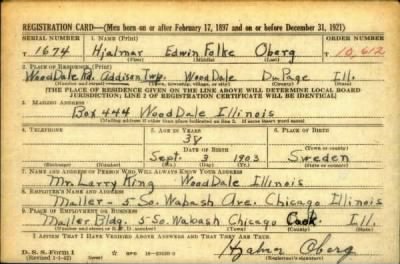 REGISTRATION CARD—(Men born on or after February 17, 1897 and on or before December 31, 1921)
SERIAL NUMBER 1. NAME (Print) ORDER NUMBER
T 1674 Hjalmar Edwin Folke Oberg T 10,612
(First) (Middle) (Last)
2. PLACE OF RESIDENCE (Print)
WoodDale Rd. Addison Twp. WoodDale DuPage Ill.
(Number and street) (Town, township, village, or city) (County) (State)
[THE PLACE OF RESIDENCE GIVEN ON THE LINE ABOVE WILL DETERMINE LOCAL BOARD
JURISDICTION; LINE 2 OF REGISTRATION CERTIFICATE WILL BE IDENTICAL]
3. MAILING ADDRESS
Box 444 WoodDale Illinois
(Mailing address if other than place indicated on line 2. If same insert word same)
4. TELEPHONE 5. AGE IN YEARS 6. PLACE OF BIRTH
38
DATE OF BIRTH (Town or county)
Sept. 3 1903 Sweden
(Exchange) (Number) (Mo.) (Day) (Yr.) (State or country)
7. NAME AND ADDRESS OF PERSON WHO WILL ALWAYS KNOW YOUR ADDRESS
Mr. Larry King WoodDale Illinois
8. EMPLOYER'S NAME AND ADDRESS
Maller - 5 So. Wabash Ave. Chicago Illinois
9. PLACE OF EMPLOYMENT OR BUSINESS
Maller Bldg. 5 So. Wabash Chicago Cook. Ill.
(Number and street or R. F. D. number) (Town) (County) (State)
I AFFIRM THAT I HAVE VERIFIED ABOVE ANSWERS AND THAT THEY ARE TRUE.
D. S. S. Form 1 Hjalmar Oberg
(Revised 1-1-42) (Registrant's signature)